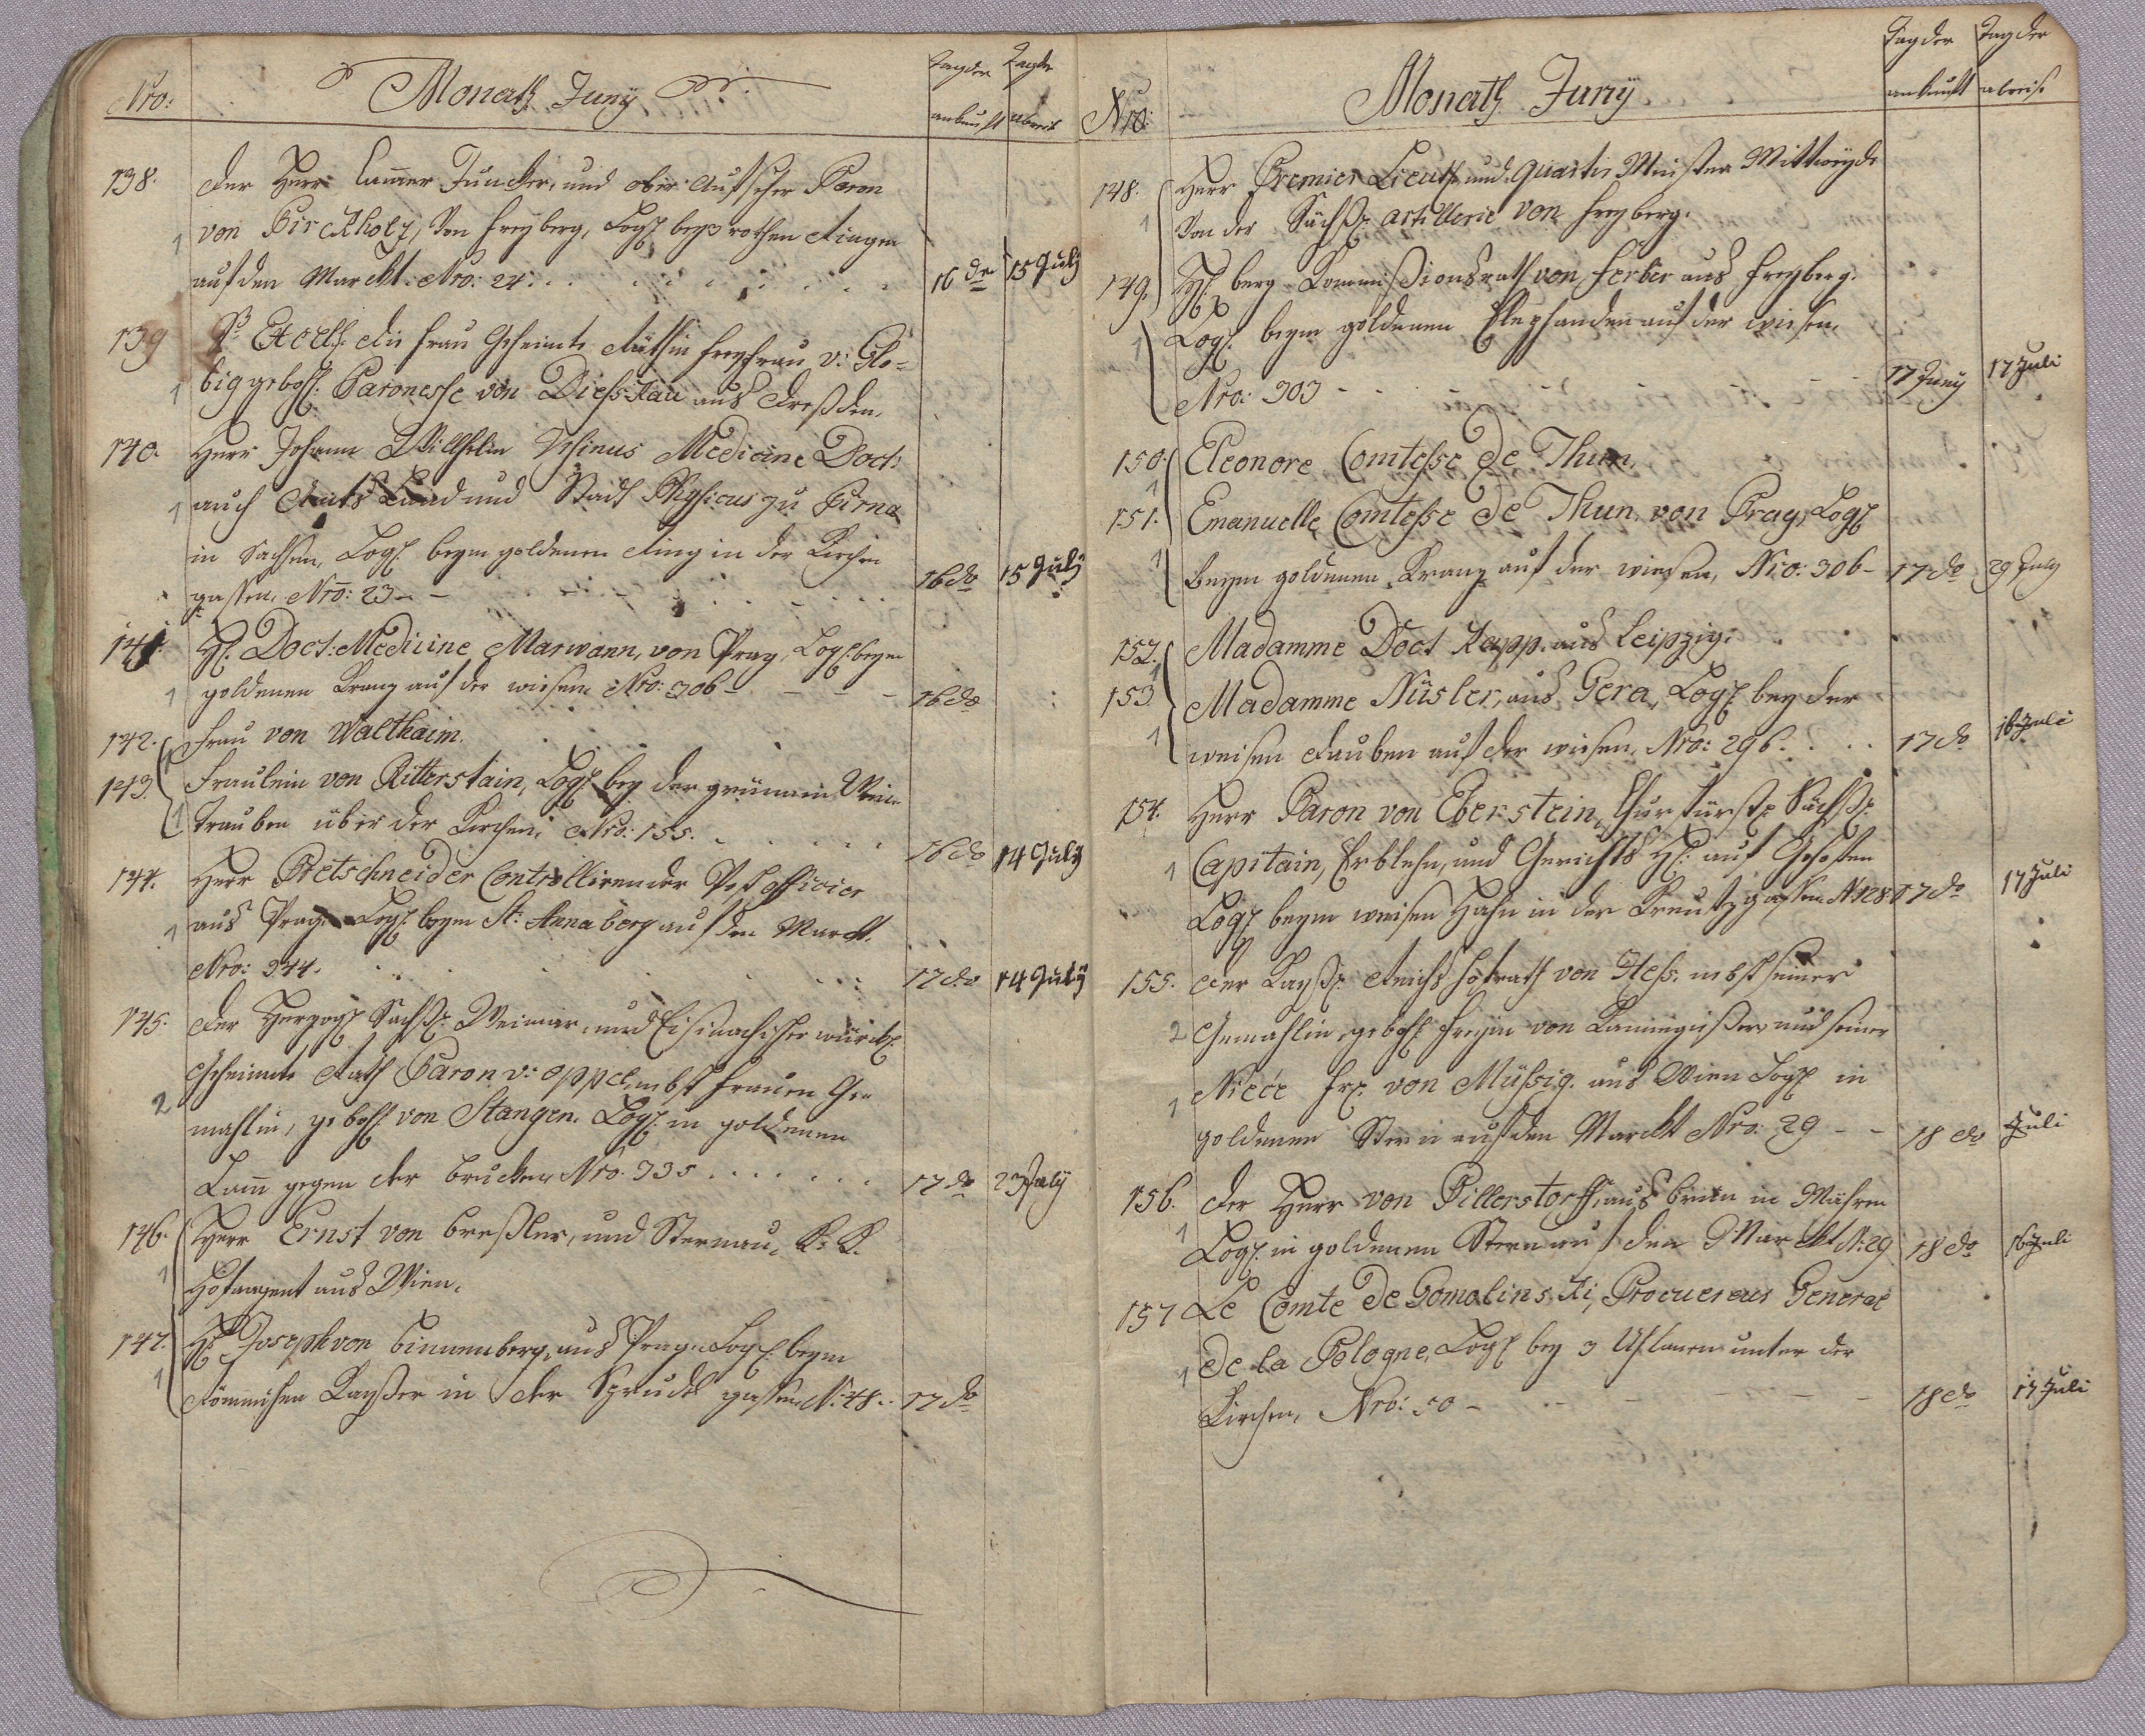 Nro:
Monath Juny
Tag der ankunft
Tag der abreis
138. Der Herr Cammer Juncker, und ober Aufseher Baron
1 von Birckholz, Von Freyberg, Logi: bey 3 rothen Ringen
auf den Marckt. Nro: 24. 16 do 15 July
139 die Frau Geheimte Räthin Freyfrau v: Glo-
1 big gebohr: Baronesse von Dieskau aus Dresden.
140. Herr Johann Wilhelm Medicine Doct:
1 auch Amts Land und Stadt Physicus zu Pirna
in Sachsen, Logi: beym goldenen Ring in der Kirchen
gassen. Nro: 23 - - 16 do 15 July
141 H: Doct: Medicine Marwann, von Prag, Logi: beym
1 goldenen Kranz auf der wiesen Nro: 306 - - - - 16 do
142. Frau von Walthaim.
143. Fraulein von Ritterstain, Logi: bey der grünnen Wein
1 Trauben über der Kirchen, Nro: 155. 16 do 14 July
144. Herr Pretschneider Controllirender Post officier
1 aus Prag. Logi: beym St: Annaberg auf den Marckt.
Nro: 244. 17 do 14 July
145. der Herzogl: Sachs: Weimar, und Eisenachischer würckl:
Geheimte Rath Baron v: Oppel, nebst Frauen Ge-
2 mahlin, gebohr: von Stangen. Logi: in goldenen
Lam gegen der brucken Nro: 335 17 do 23 July
146. Herr Ernst von Bressler, und Sternau, K: K.
1 Hofagent aus Wien.
147. H: Joseph von Binnenberg, aus Prag. Logi: beym
1 Römischen Kayser in der Sprudl gassen N: 48. 17 do
Nro:
Monath Juny
Tag der ankunft
Tag der abreise
148. Herr Premier Lieuth: und Quartir Meister Mittweyde
1 Von der Sächs: artillerie von Freyberg.
149. H: berg Kommissionsrath von Ferber aus Freyberg.
1 Logi: beym goldenen Elephanden auf der wiesen,
Nro: 303 - - 17 Juny 17 Juli
150. Eleonore Comtesse de Thun.
1
151. Emanuelle Comtesse de Thun, von Prag, Logi:
1 beym goldenen Kranz auf der wiesen, Nro: 306 - 17 do 29 July
152. Madamme Doct Kapp, aus Leipzig.
1
153. Madamme Nüsler, aus Gera, Logi: bey der
1 weisen Tauben auf der wiesen, Nro: 296. 17 do 16 Juli
154. Herr Baron von Eberstein, Churfürstl: Sächs:
1 Capitain, Erblehn, und Gerichts H: auf Gehofen
Logi: beym weisen Hahn in der Kreutz gassen N 128 17 do 17 Juli
155. der Kaysl: Reichs Hofrath von Hess. nebst seiner
2 Gemahlin, gebohr: Freyin von und seiner
1 Niéce Frl: von Müssig. aus Wien Logi: in
goldenen Stern auf den Marckt Nro: 29 - - 18 do Juli
156. der Herr von Pillerstorff, aus brün in Mähren
1 Logi: in goldenen Stern auf den Marckt N: 29 18 do 16 Juli
157 Le Comte de Gomolinski, Procuereur General
1 de la Pologne, Logi: bey 3 Uhlanen unter der
Kirchen, Nro: 50 - - - 18 do 17 Juli